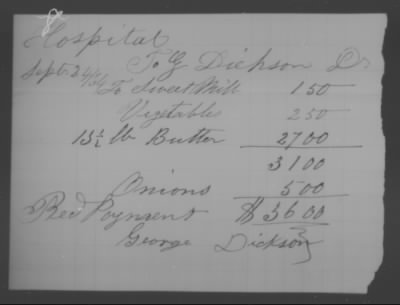 Hospital
To G Dickson Dr
Sept. 24/64
To Sweet Milk 1 50
Vegetables 2 50
13½ lb Butter 27 00
31 00
Onions 5 00
Recd Poynment $ 36 00
George Dickson